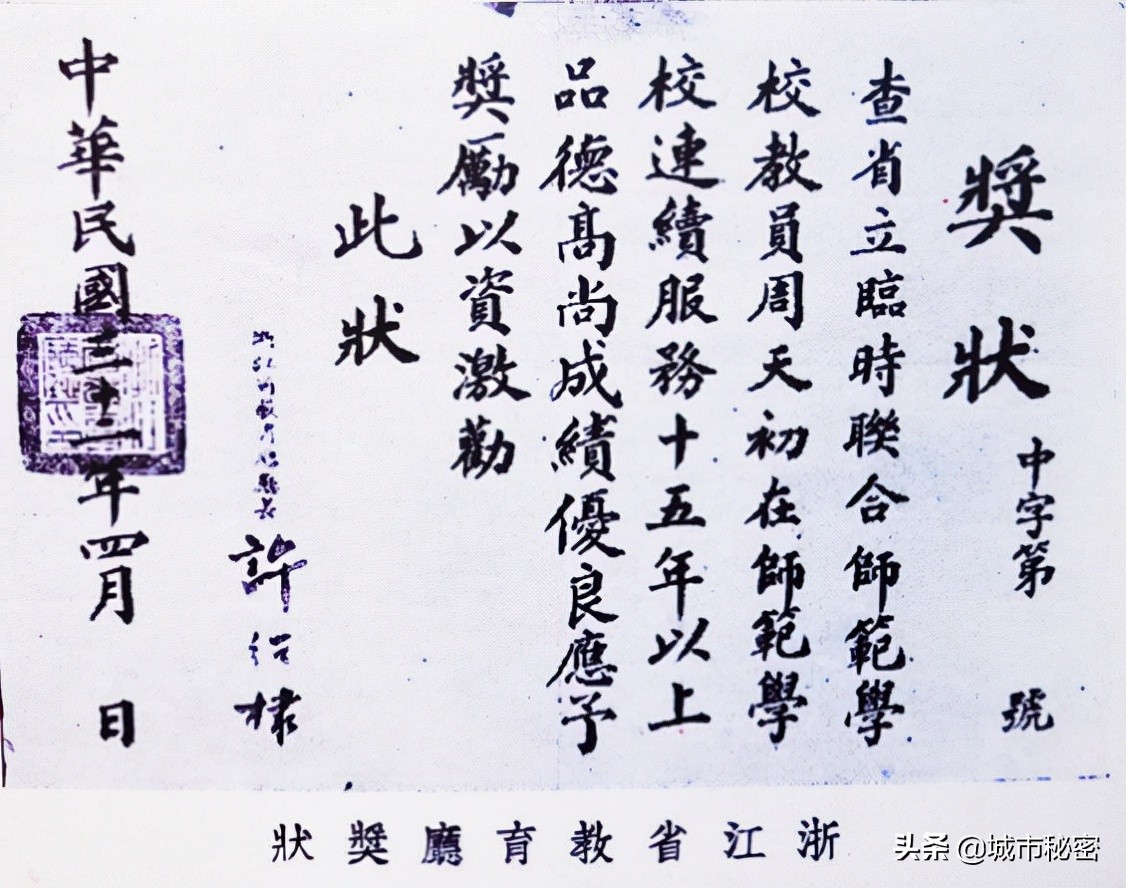 獎狀
中字第 號
查省立臨時聯合師範學
校教員周天初在師範學
校連續服務十五年以上
品德高尚成績優良應予
獎勵以資激勸
此狀
廳長
許紹棣
中華民國三十二年四月 日
浙江省教育廳獎狀
头条 @城市秘密